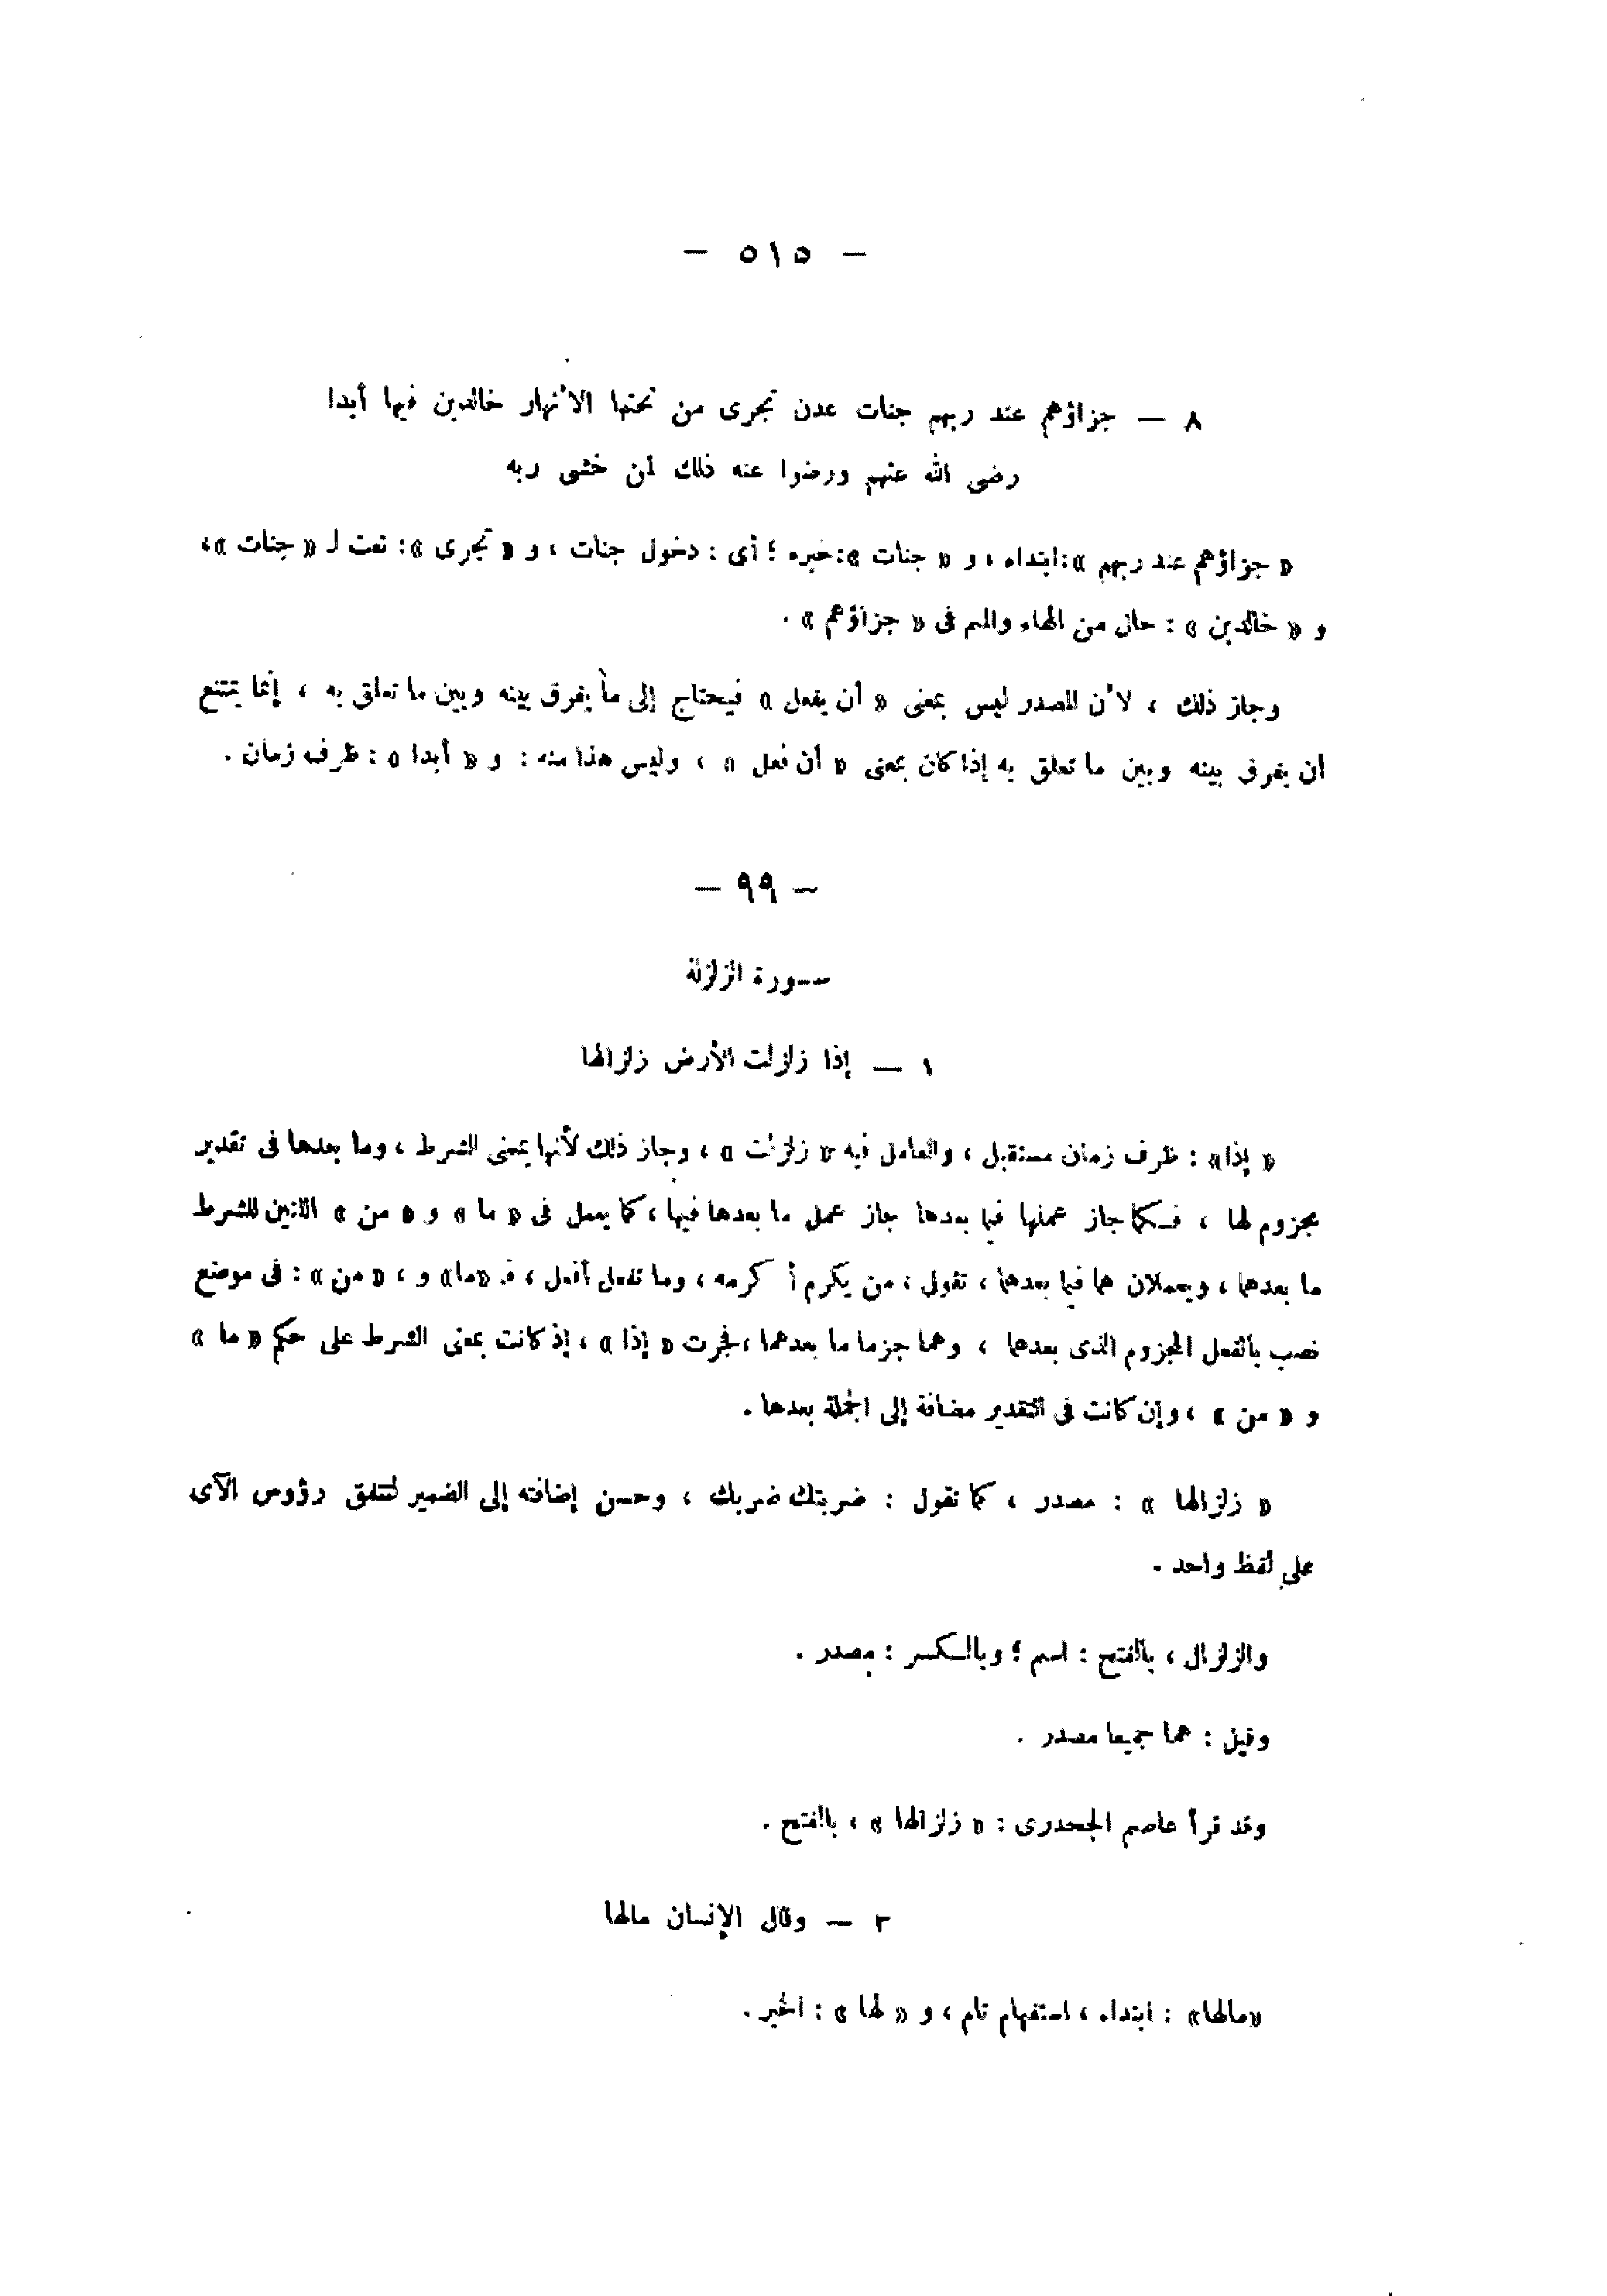 — ٥١٥ —
٨ — جزاؤهم عند ربهم جنات عدن تجرى من تحتها الأنهار خالدين فيها أبدا
رضى الله عنهم ورضوا عنه ذلك لمن خشى ربه
« جزاؤهم عند ربهم »: ابتداء ، و « جنات »: خبره ؛ أى : دخول جنات ، و « تجرى »: نعت لـ « جنات »،
و « خالدين » : حال من الهاء والميم فى « جزاؤهم » .
وجاز ذلك ، لأن المصدر ليس بمعنى « أن يفعل » فيحتاج إلى ما يفرق بينه وبين ما تعلق به ، إنما يمتنع
أن يفرق بينه وبين ما تعلق به إذا كان بمعنى « أن فعل » ، وليس هذا منه : و « أبدا » : ظرف زمان .
— ٩٩ —
سورة الزلزلة
١ — إذا زلزلت الأرض زلزالها
« إذا» : ظرف زمان مستقبل ، والعامل فيه « زلزلت » ، وجاز ذلك لأنها بمعنى الشرط ، وما بعدها فى تقدير
مجزوم لها ، فكما جاز عملها فيما بعدها جاز عمل ما بعدها فيها ، كما يعمل فى « ما » و « من » اللتين للشرط
ما بعدها ، ويعملان هما فيما بعدهما ، تقول ، من يكرم أكرمه ، وما تفعل أفعل ، فـ «ما» و ، « من » : فى موضع
نصب بالفعل المجزوم الذى بعدها ، وهما جزما ما بعدهما ، فجرت « إذا » ، إذ كانت بمعنى الشرط على حكم « ما »
و « من » ، وإن كانت فى التقدير مضافة إلى الجملة بعدها .
« زلزالها » : مصدر ، كما تقول : ضربتك ضربك ، وحسن إضافته إلى الضمير لتتفق رؤوس الآى
على لفظ واحد .
والزلزال ، بالفتح : اسم ؛ وبالكسر : مصدر .
وقيل : هما جميعا مصدر .
وقد قرأ عاصم الجحدرى : « زلزالها » ، بالفتح .
٣ — وقال الإنسان مالها
«مالها» : ابتداء ، استفهام تام ، و « لها » : الخبر .